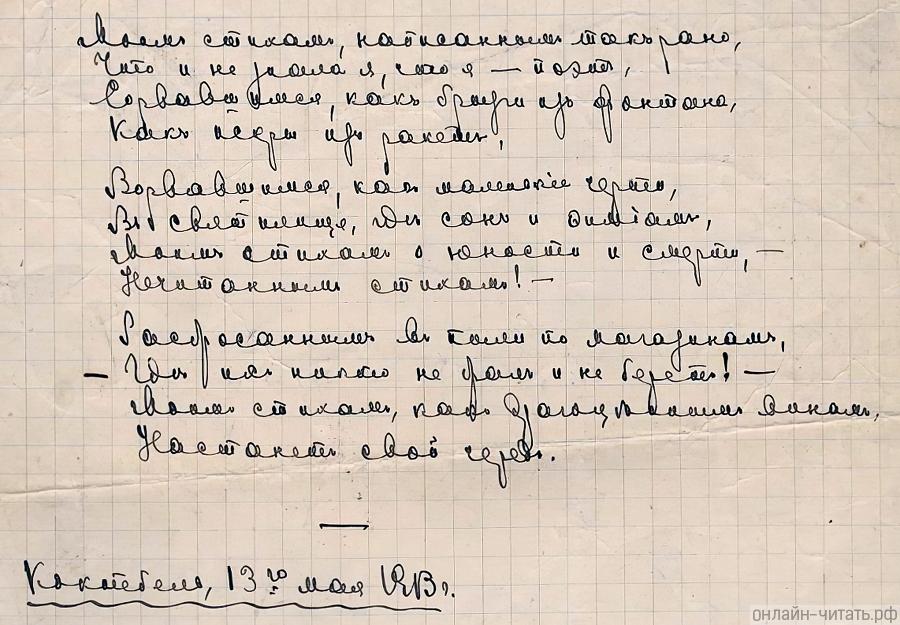 Моимъ стихамъ, написаннымъ такъ рано,
Что и не знала я, что я — поэтъ,
Сорвавшимся, какъ брызги изъ фонтана,
Какъ искры изъ ракетъ,
Ворвавшимся, какъ маленькіе черти,
Въ святилище, гдѣ сонъ и ѳиміамъ,
Моимъ стихамъ о юности и смерти, —
Нечитаннымъ стихамъ! —
Разбросаннымъ въ пыли по магазинамъ,
— Гдѣ ихъ никто не бралъ и не беретъ! —
Моимъ стихамъ, какъ драгоцѣннымъ винамъ,
Настанетъ свой чередъ.
Коктебель, 13го мая 1913 г.
онлайн-читать.рф